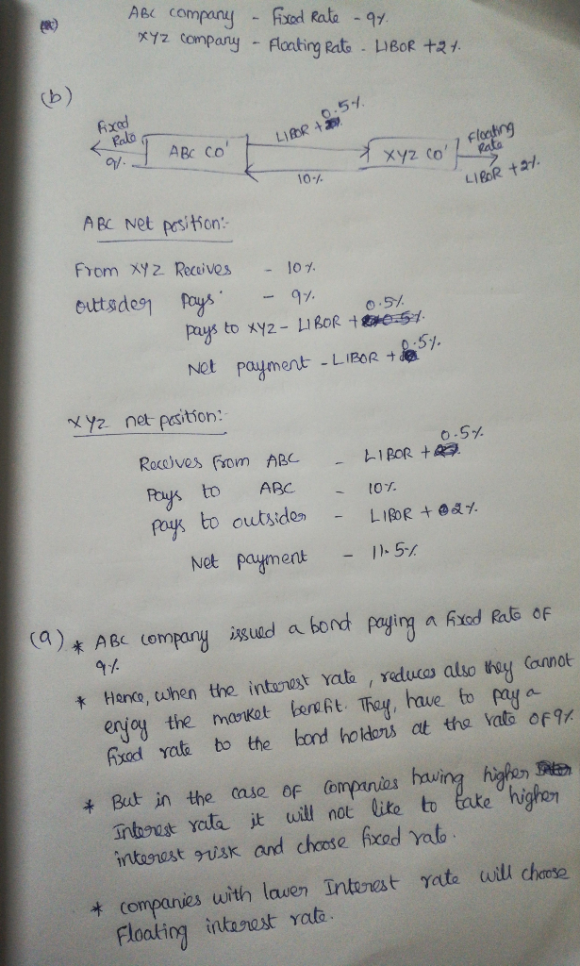 ABC company - Fixed Rate - 9%
XYZ company - Floating Rate - LIBOR + 2%
(b)
Fixed Rate 9%
ABC CO'
LIBOR + 0.5%
10%
XYZ CO'
Floating Rate
LIBOR + 2%
ABC Net position:-
From XYZ Receives - 10%
outtsider pays - 9%
pays to XYZ - LIBOR + 0.5%
Net payment - LIBOR + 0.5%
XYZ net position:-
Receives From ABC - LIBOR + 0.5%
Pays to ABC - 10%
pays to outsider - LIBOR + 2%
Net payment - 11.5%
(a) * ABC company issued a bond paying a fixed Rate OF
9%
* Hence, when the interest rate, reduces also they cannot
enjoy the market benefit. They, have to pay a
fixed rate to the bond holders at the rate OF 9%
* But in the case OF companies having higher
Interest rate it will not like to take higher
interest risk and choose fixed rate.
* companies with lower Interest rate will choose
Floating interest rate.